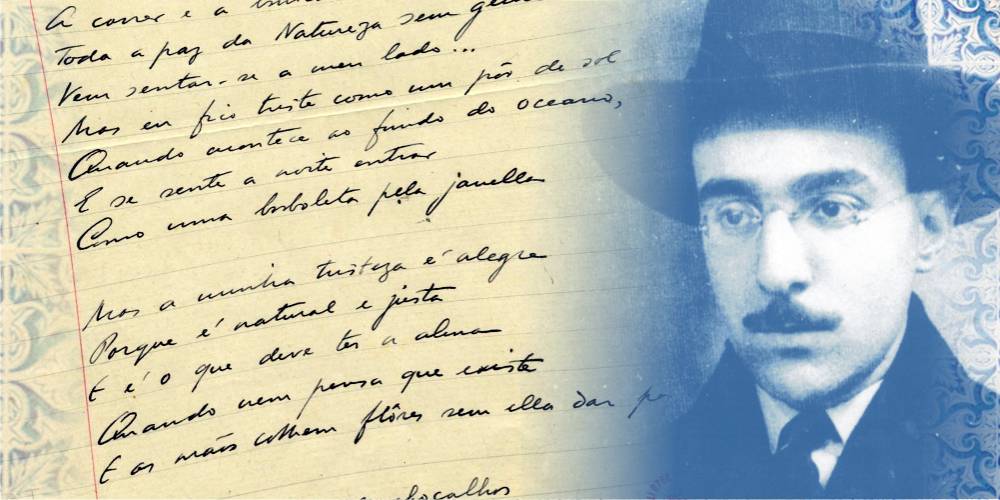 A correr e a
Toda a paz da Natureza sem
Vem sentar-se a meu lado...
Mas eu fico triste como um pôr de sol
Quando acontece ao fundo do oceano,
E se sente a noite entrar
Como uma borboleta pela janella
Mas a minha tristeza é alegre
Porque é natural e justa
E é o que deve ter a alma
Quando nem pensa que existe
E as mãos colhem flôres sem ella dar
chocalhos